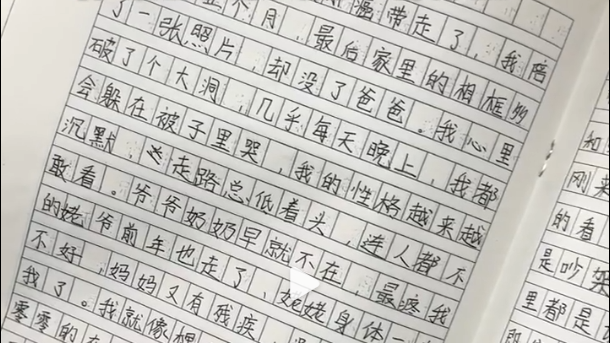 温带走了，我陪
个月，最后家里的相框
了一张照片，却没了爸爸。我心里
破了个大洞，几乎每天晚上，我都
会躲在被子里哭，我的性格越来越
沉默，走路总低着头，连人都不
敢看。爷爷奶奶早就不在，最疼我
的姥爷前年也走了，姥姥身体一
不好，妈妈又有残疾，
我了。我就像
零零的在
和
刚来
的看
是吵架
里都是